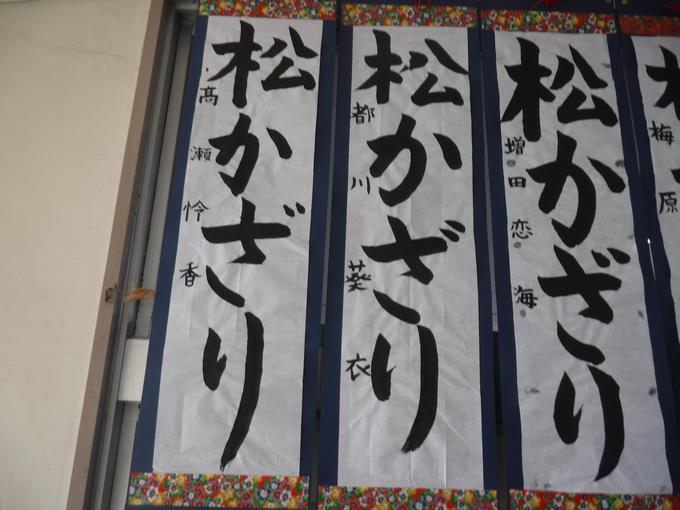 松かざり
髙瀬怜香
松かざり
都川葵衣
松かざり
増田恋海
梅原